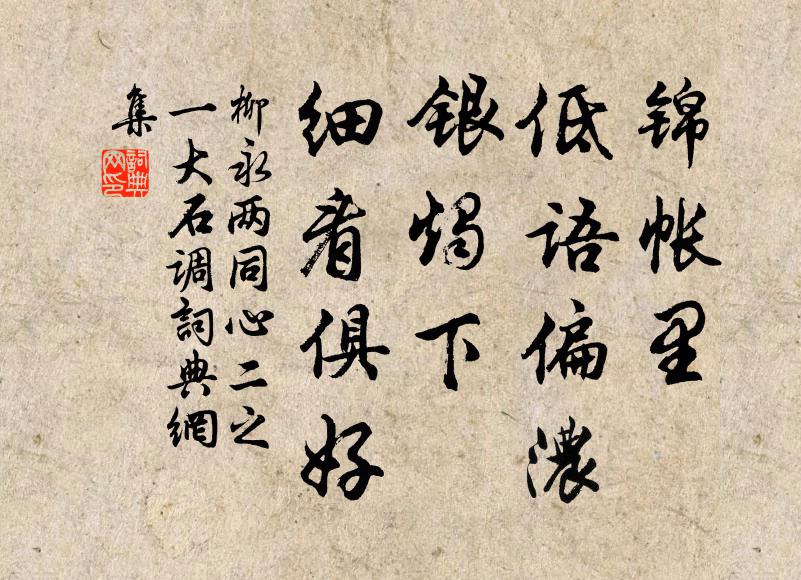 锦帐里
低语偏濃
银烛下
细看俱好
柳永两同心二之
一大石调詞典網
集
詞典網印